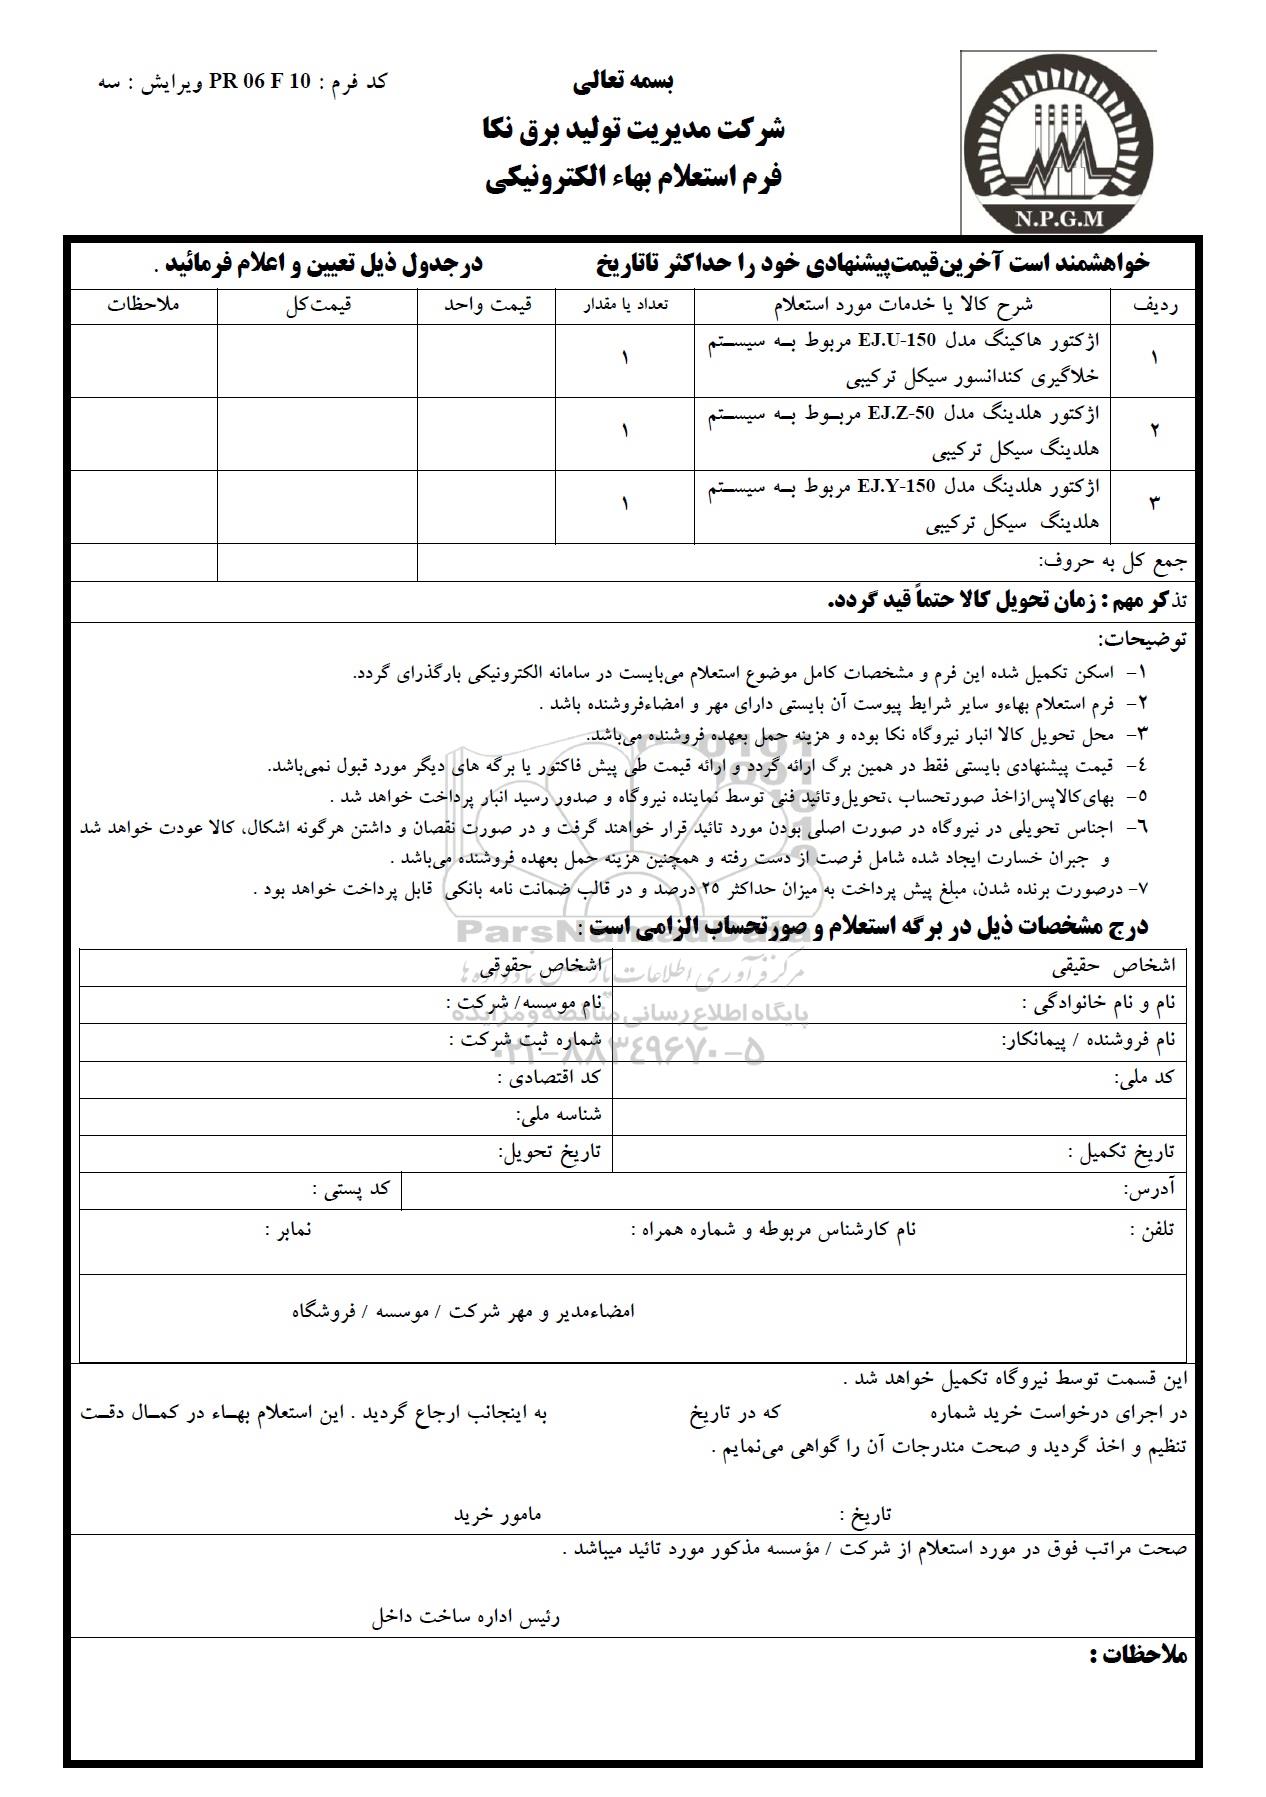 بسمه تعالی
کد فرم : PR 06 F 10 ویرایش : سه
شرکت مدیریت تولید برق نکا
فرم استعلام بهاء الکترونیکی
N.P.G.M
خواهشمند است آخرین‌قیمت‌پیشنهادی خود را حداکثر تاتاریخ درجدول ذیل تعیین و اعلام فرمائید .
ردیف شرح کالا یا خدمات مورد استعلام تعداد یا مقدار قیمت واحد قیمت‌کل ملاحظات
۱ اژکتور هاکینگ مدل EJ.U-150 مربوط به سیستم ۱
خلاگیری کندانسور سیکل ترکیبی
۲ اژکتور هلدینگ مدل EJ.Z-50 مربوط به سیستم ۱
هلدینگ سیکل ترکیبی
۳ اژکتور هلدینگ مدل EJ.Y-150 مربوط به سیستم ۱
هلدینگ سیکل ترکیبی
جمع کل به حروف:
تذکر مهم : زمان تحویل کالا حتماً قید گردد.
توضیحات:
۱- اسکن تکمیل شده این فرم و مشخصات کامل موضوع استعلام می‌بایست در سامانه الکترونیکی بارگذرای گردد.
۲- فرم استعلام بهاءو سایر شرایط پیوست آن بایستی دارای مهر و امضاءفروشنده باشد .
۳- محل تحویل کالا انبار نیروگاه نکا بوده و هزینه حمل بعهده فروشنده می‌باشد.
۴- قیمت پیشنهادی بایستی فقط در همین برگ ارائه گردد و ارائه قیمت طی پیش فاکتور یا برگه های دیگر مورد قبول نمی‌باشد.
۵- بهای‌کالاپس‌ازاخذ صورتحساب ،تحویل‌وتائید فنی توسط نماینده نیروگاه و صدور رسید انبار پرداخت خواهد شد .
۶- اجناس تحویلی در نیروگاه در صورت اصلی بودن مورد تائید قرار خواهند گرفت و در صورت نقصان و داشتن هرگونه اشکال، کالا عودت خواهد شد
و جبران خسارت ایجاد شده شامل فرصت از دست رفته و همچنین هزینه حمل بعهده فروشنده می‌باشد .
۷- درصورت برنده شدن، مبلغ پیش پرداخت به میزان حداکثر ۲۵ درصد و در قالب ضمانت نامه بانکی قابل پرداخت خواهد بود .
درج مشخصات ذیل در برگه استعلام و صورتحساب الزامی است :
ParsNamadData
مرکز فرآوری اطلاعات پارس نماد داده‌ها
پایگاه اطلاع رسانی مناقصه و مزایده
۰۲۱-۸۸۳۴۹۶۷۰-۵
اشخاص حقیقی اشخاص حقوقی
نام و نام خانوادگی : نام موسسه/ شرکت :
نام فروشنده / پیمانکار: شماره ثبت شرکت :
کد ملی: کد اقتصادی :
شناسه ملی:
تاریخ تکمیل : تاریخ تحویل:
آدرس: کد پستی :
تلفن : نام کارشناس مربوطه و شماره همراه : نمابر :
امضاءمدیر و مهر شرکت / موسسه / فروشگاه
این قسمت توسط نیروگاه تکمیل خواهد شد .
در اجرای درخواست خرید شماره که در تاریخ به اینجانب ارجاع گردید . این استعلام بهاء در کمال دقت
تنظیم و اخذ گردید و صحت مندرجات آن را گواهی می‌نمایم .
تاریخ : مامور خرید
صحت مراتب فوق در مورد استعلام از شرکت / مؤسسه مذکور مورد تائید میباشد .
رئیس اداره ساخت داخل
ملاحظات :